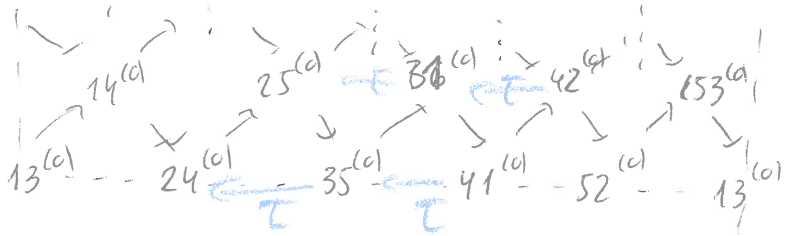 14^(0) 25^(0) τ 31^(0) τ 42^(0) 53^(0)
13^(0) 24^(0) τ 35^(0) τ 41^(0) 52^(0) 13^(0)